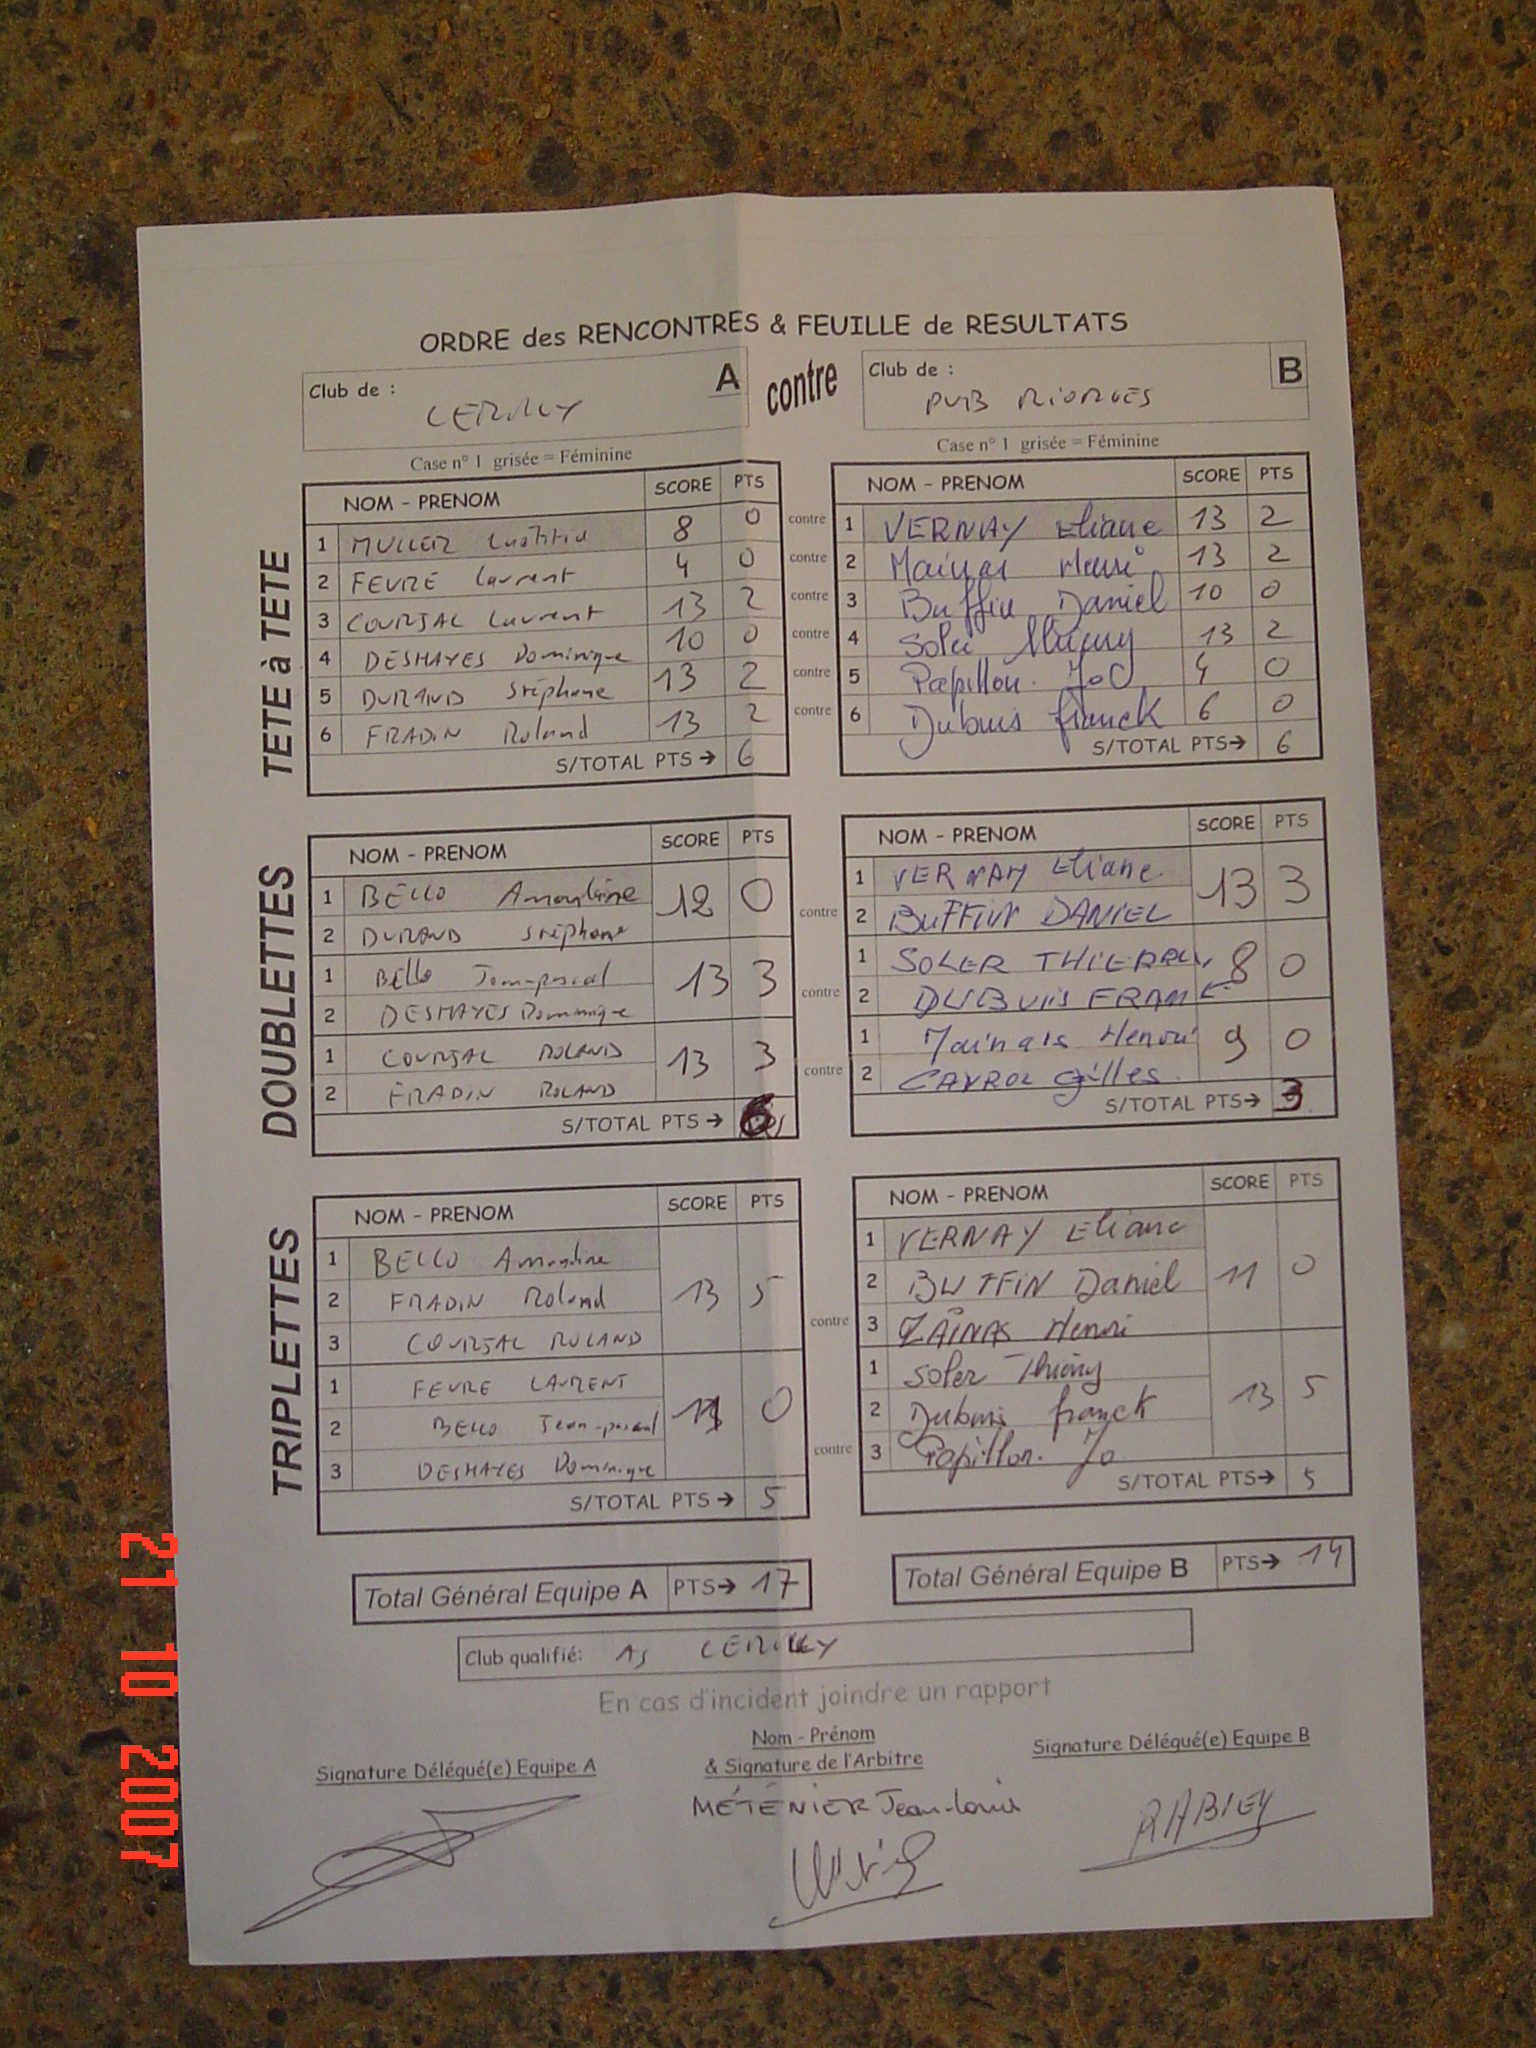 ORDRE des RENCONTRES & FEUILLE de RESULTATS
Club de : CERILLY A
contre
Club de : PUB RIORGES B
Case n° 1 grisée = Féminine
Case n° 1 grisée = Féminine
TETE à TETE
NOM - PRENOM SCORE PTS
1 MULLER Laetitia 8 0
2 FEVRE Laurent 4 0
3 COURSAL Laurent 13 2
4 DESHAYES Dominique 10 0
5 DURAND Stéphane 13 2
6 FRADIN Roland 13 2
S/TOTAL PTS→ 6
contre
contre
contre
contre
contre
contre
NOM - PRENOM SCORE PTS
1 VERNAY Eliane 13 2
2 Mainas Henri 13 2
3 Buffin Daniel 10 0
4 Soler Thierry 13 2
5 Papillon. Jo 4 0
6 Dubuis franck 6 0
S/TOTAL PTS→ 6
DOUBLETTES
NOM - PRENOM SCORE PTS
1 BELLO Amandine 12 0
2 DURAND Stéphane
1 Bello Jean-pascal 13 3
2 DESHAYES Dominique
1 COURSAL ROLAND 13 3
2 FRADIN ROLAND
S/TOTAL PTS → 6
contre
contre
contre
NOM - PRENOM SCORE PTS
1 VERNAY Eliane. 13 3
2 BUFFIN DANIEL
1 SOLER THIERRY 8 0
2 DUBUIS FRANCK
1 Mainas Henri 9 0
2 CAYROL Gilles.
S/TOTAL PTS→ 3
TRIPLETTES
NOM - PRENOM SCORE PTS
1 BELLO Amandine 13 5
2 FRADIN Roland
3 COURSAL ROLAND
1 FEVRE LAURENT 11 0
2 BELLO Jean-pascal
3 DESHAYES Dominique
S/TOTAL PTS → 5
contre
contre
NOM - PRENOM SCORE PTS
1 VERNAY Eliane 11 0
2 BUFFIN Daniel
3 ZAÏNAS Henri
1 Soler Thierry 13 5
2 Dubuis franck
3 Papillon. Jo
S/TOTAL PTS→ 5
Total Général Equipe A PTS→ 17
Total Général Equipe B PTS→ 14
Club qualifié: AS CERILLY
En cas d'incident joindre un rapport
Signature Délégué(e) Equipe A
Nom - Prénom
& Signature de l'Arbitre
MÉTÉNIER Jean-Louis
Signature Délégué(e) Equipe B
RABIEY
21 10 2007